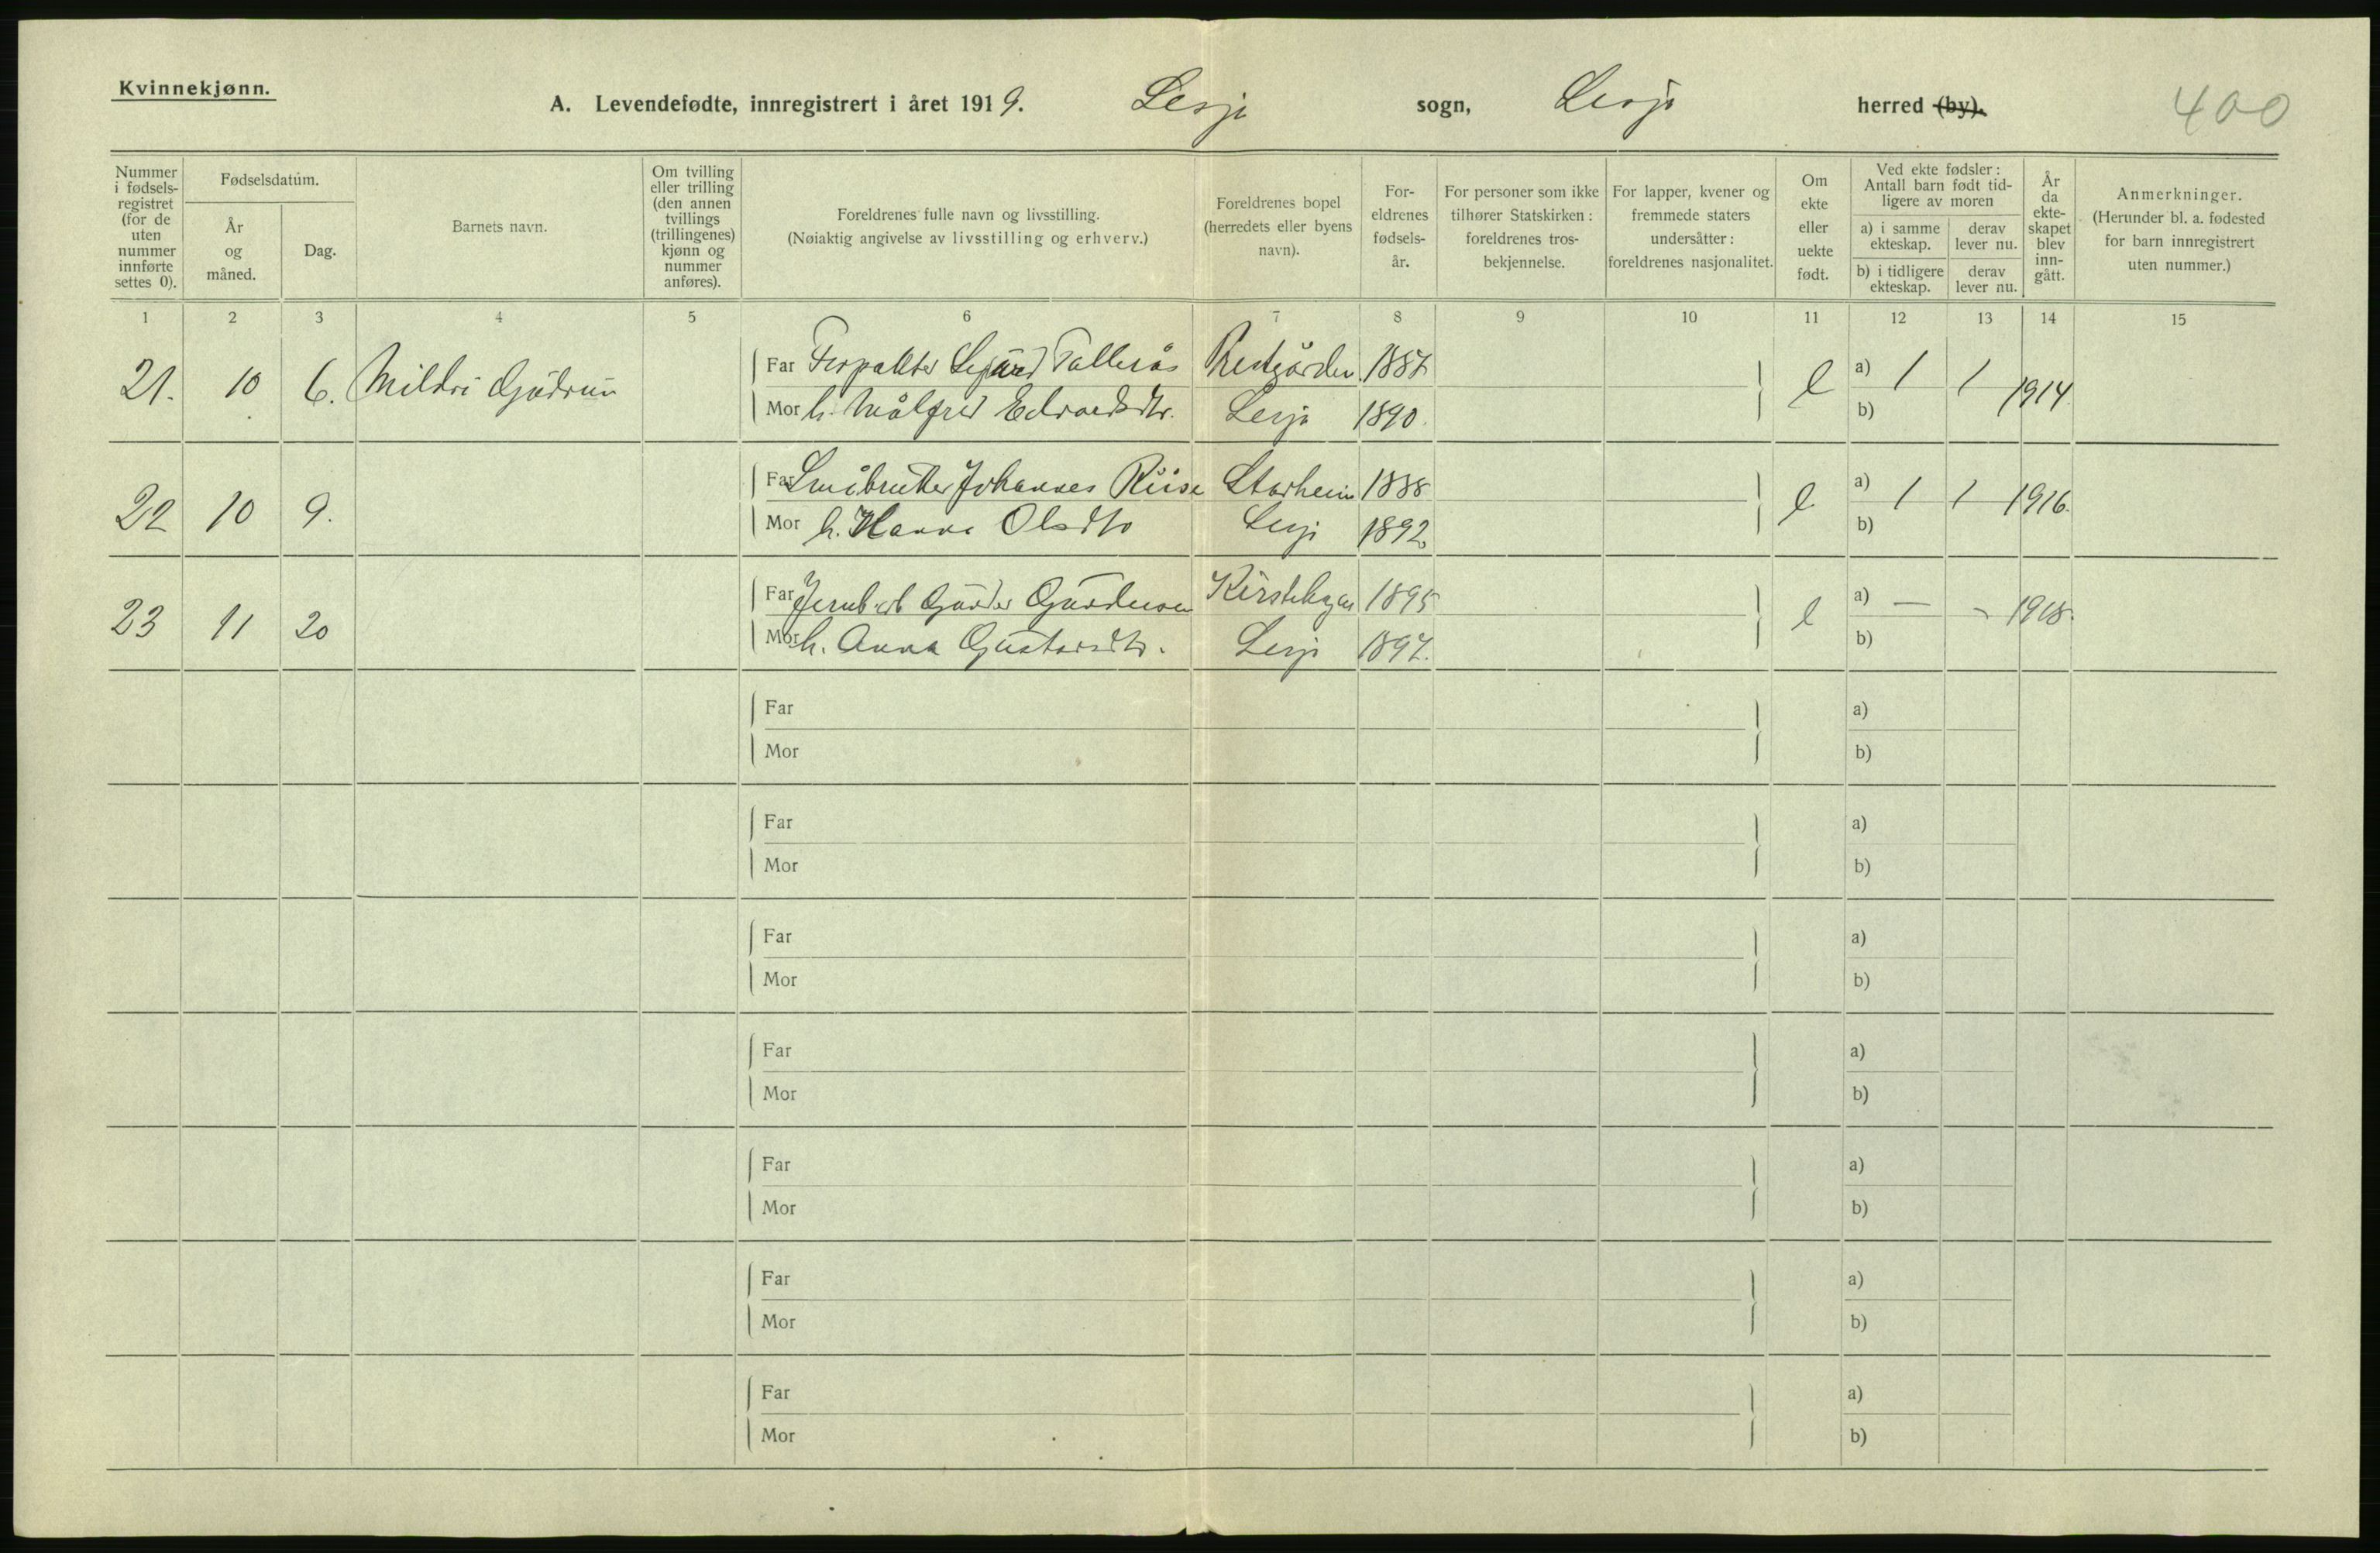 Kvinnekjønn.
A. Levendefødte, innregistrert i året 1919. Lesja sogn, Lesja herred (by).
400
Nummer i fødsels-registret (for de uten nummer innførte settes 0).
Fødselsdatum.
År og måned.
Dag.
Barnets navn.
Om tvilling eller trilling (den annen tvillings (trillingenes) kjønn og nummer anføres).
Foreldrenes fulle navn og livsstilling.
(Nøiaktig angivelse av livsstilling og erhverv.)
Foreldrenes bopel (herredets eller byens navn).
For-eldrenes fødsels-år.
For personer som ikke tilhører Statskirken: foreldrenes tros-bekjennelse.
For lapper, kvener og fremmede staters undersåtter: foreldrenes nasjonalitet.
Om ekte eller uekte født.
Ved ekte fødsler: Antall barn født tid-ligere av moren
a) i samme ekteskap.
derav lever nu.
b) i tidligere ekteskap.
derav lever nu.
År da ekte-skapet blev inn-gått.
Anmerkninger.
(Herunder bl. a. fødested for barn innregistrert uten nummer.)
1 2 3 4 5 6 7 8 9 10 11 12 13 14 15
21. 10 6. Mildri Gudrun Far Forpakter Sigurd Tallerås Prestgården 1887 e a) 1 1 1914
Mor h. Målfrid Edvardsdtr. Lesja 1890. b)
22 10 9. Far Småbruker Johannes Riise Storheim 1888 e a) 1 1 1916.
Mor h. Hanna Olsdtr Lesja 1892 b)
23 11 20 Far Jernb.arb Gunder Gundersen 1895 e a) — - 1918.
Mor h. Anna Gustavsdtr. Lesja 1897. b)
Far a)
Mor b)
Far a)
Mor b)
Far a)
Mor b)
Far a)
Mor b)
Far a)
Mor b)
Far a)
Mor b)
Far a)
Mor b)